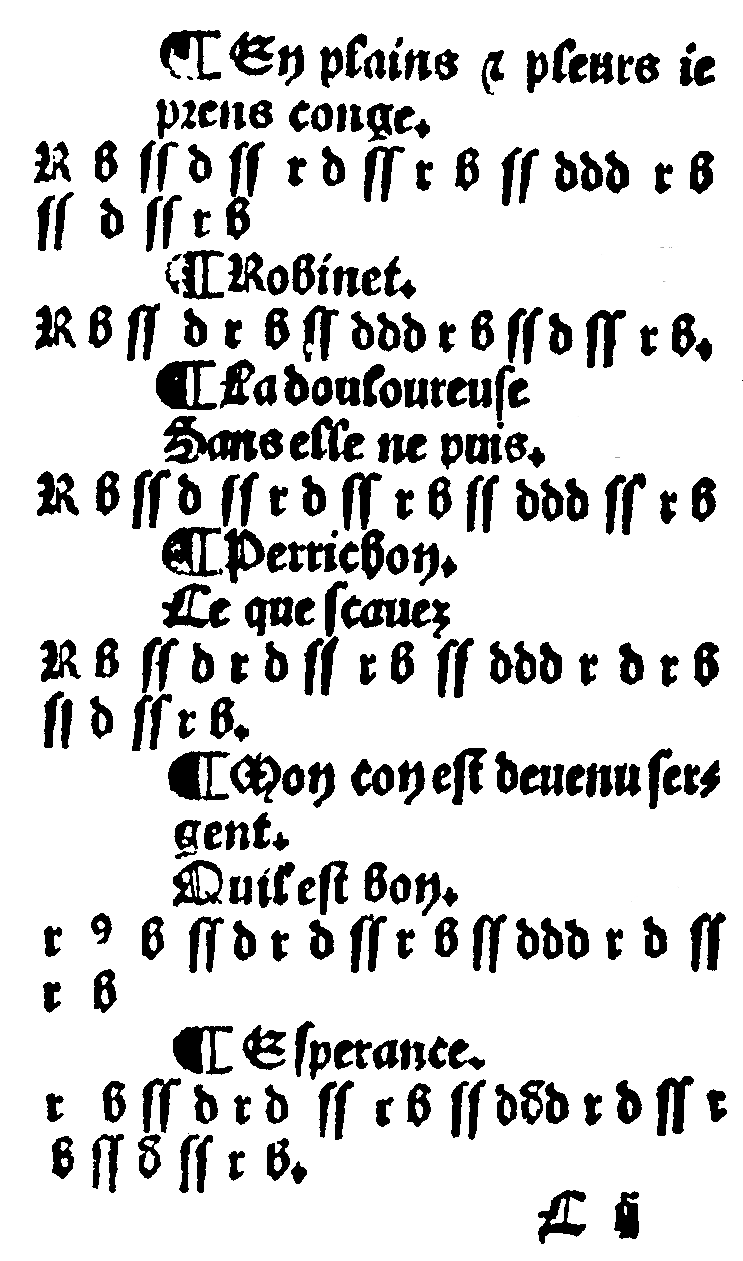 ¶ En plains ⁊ pleurs ie
prens conge.
R b ſſ d ſſ r d ſſ r b ſſ ddd r b
ſſ d ſſ r b
¶ Robinet.
R b ſſ d r b ſſ ddd r b ſſ d ſſ r b.
¶ La douloureuſe
Sans elle ne puis.
R b ſſ d ſſ r d ſſ r b ſſ ddd ſſ r b
¶ Perrichon.
Le que ſcauez
R b ſſ d r d ſſ r b ſſ ddd r d r b
ſſ d ſſ r b.
¶ Mon con eſt deuenu ſer⸗
gent.
Quil eſt bon.
r 9 b ſſ d r d ſſ r b ſſ ddd r d ſſ
r b
¶ Eſperance.
r b ſſ d r d ſſ r b ſſ ddd r d ſſ r
b ſſ d ſſ r b.
C ij